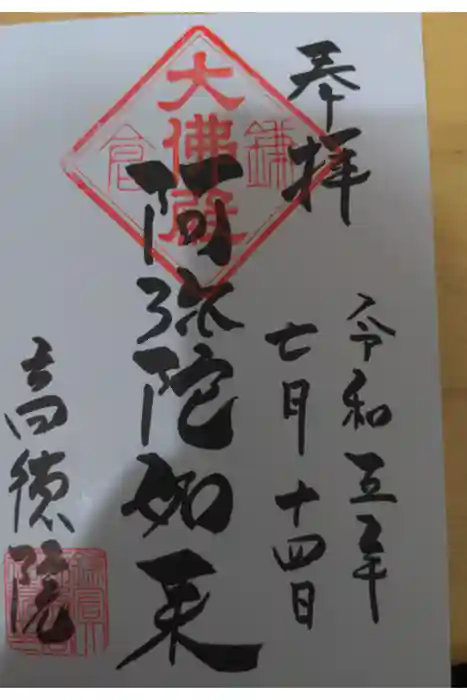 奉拝
令和五年
七月十四日
大佛殿
鎌倉
阿弥陀如来
高徳院